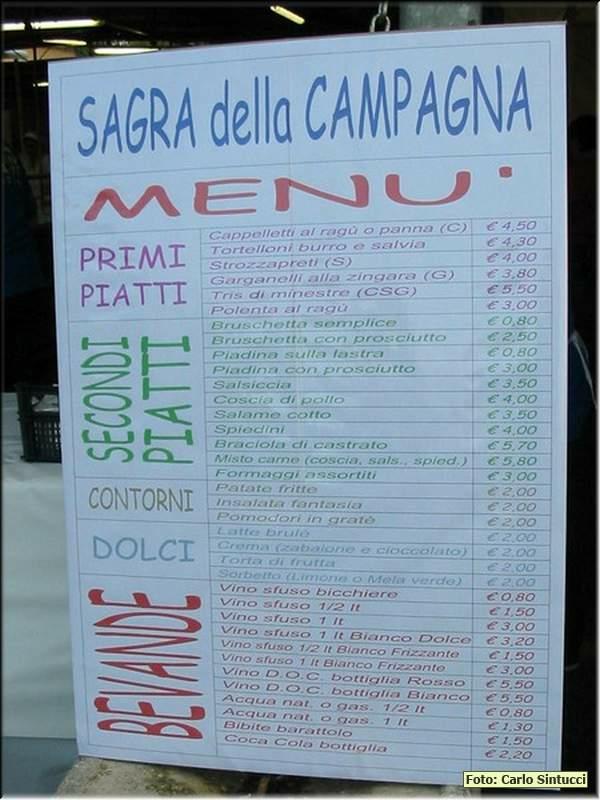 SAGRA della CAMPAGNA
MENU'
PRIMI PIATTI
Cappelletti al ragù o panna (C) € 4,50
Tortelloni burro e salvia € 4,30
Strozzapreti (S) € 4,00
Garganelli alla zingara (G) € 3,80
Tris di minestre (CSG) € 5,50
Polenta al ragù € 3,00
SECONDI PIATTI
Bruschetta semplice € 0,80
Bruschetta con prosciutto € 2,50
Piadina sulla lastra € 0,80
Piadina con prosciutto € 3,00
Salsiccia € 3,50
Coscia di pollo € 4,00
Salame cotto € 3,50
Spiedini € 4,00
Braciola di castrato € 5,70
Misto carne (coscia, sals., spied.) € 5,80
Formaggi assortiti € 3,00
CONTORNI
Patate fritte € 2,00
Insalata fantasia € 2,00
Pomodori in gratè € 2,00
DOLCI
Latte brulè € 2,00
Crema (zabaione e cioccolato) € 2,00
Torta di frutta € 2,00
Sorbetto (Limone o Mela verde) € 2,00
BEVANDE
Vino sfuso bicchiere € 0,80
Vino sfuso 1/2 lt € 1,50
Vino sfuso 1 lt € 3,00
Vino sfuso 1 lt Bianco Dolce € 3,20
Vino sfuso 1/2 lt Bianco Frizzante € 1,50
Vino sfuso 1 lt Bianco Frizzante € 3,00
Vino D.O.C. bottiglia Rosso € 5,50
Vino D.O.C. bottiglia Bianco € 5,50
Acqua nat. o gas. 1/2 lt € 0,80
Acqua nat. o gas. 1 lt € 1,30
Bibite barattolo € 1,50
Coca Cola bottiglia € 2,20
Foto: Carlo Sintucci